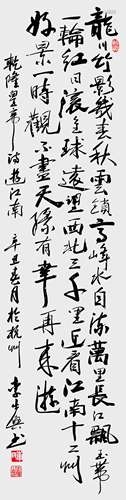 龍川竹影幾千秋雲鎖高峰水自流萬里長江飄玉帶
一輪紅日滾金球遠望西北三千里近看江南十二州
好景一時觀不盡天緣有幸再來遊
乾隆皇帝詩遊江南 辛丑月於杭州 李書